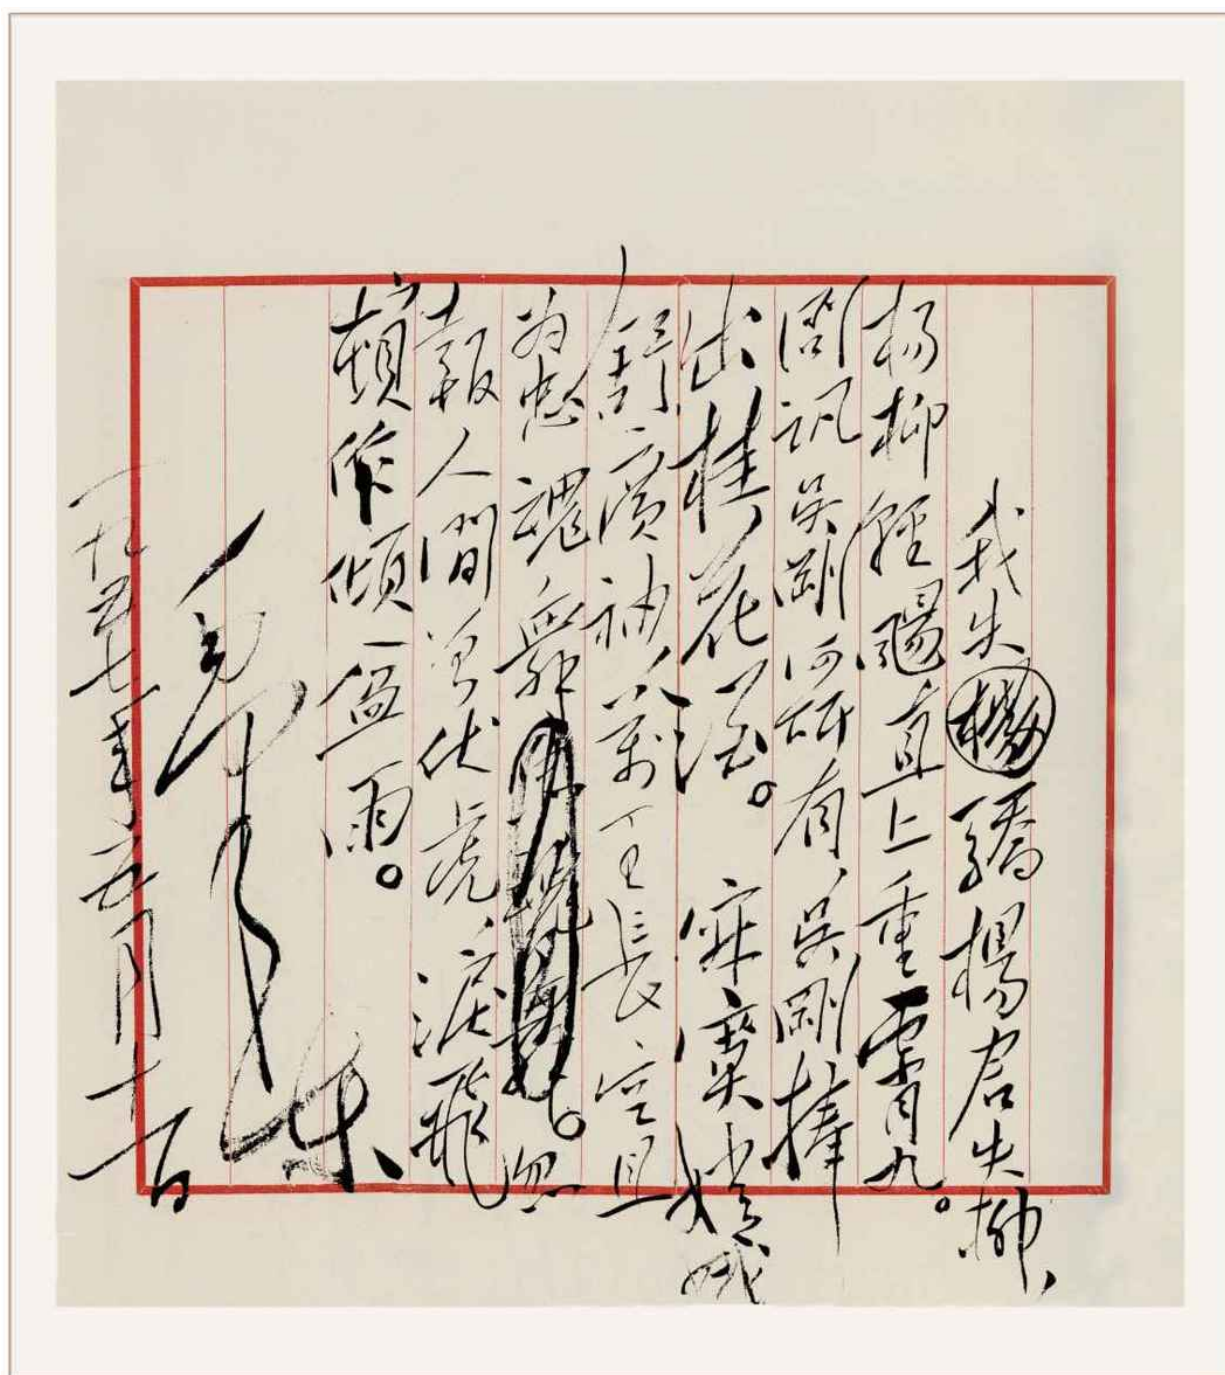 我失驕楊君失柳、
楊柳輕颺直上重霄九。
問訊吳剛何所有、吳剛捧
出桂花酒。寂寞嫦娥
舒廣袖、萬里長空且
為忠魂舞。忽
報人間曾伏虎、淚飛
頓作傾盆雨。
毛澤東
一九五七年五月十一日